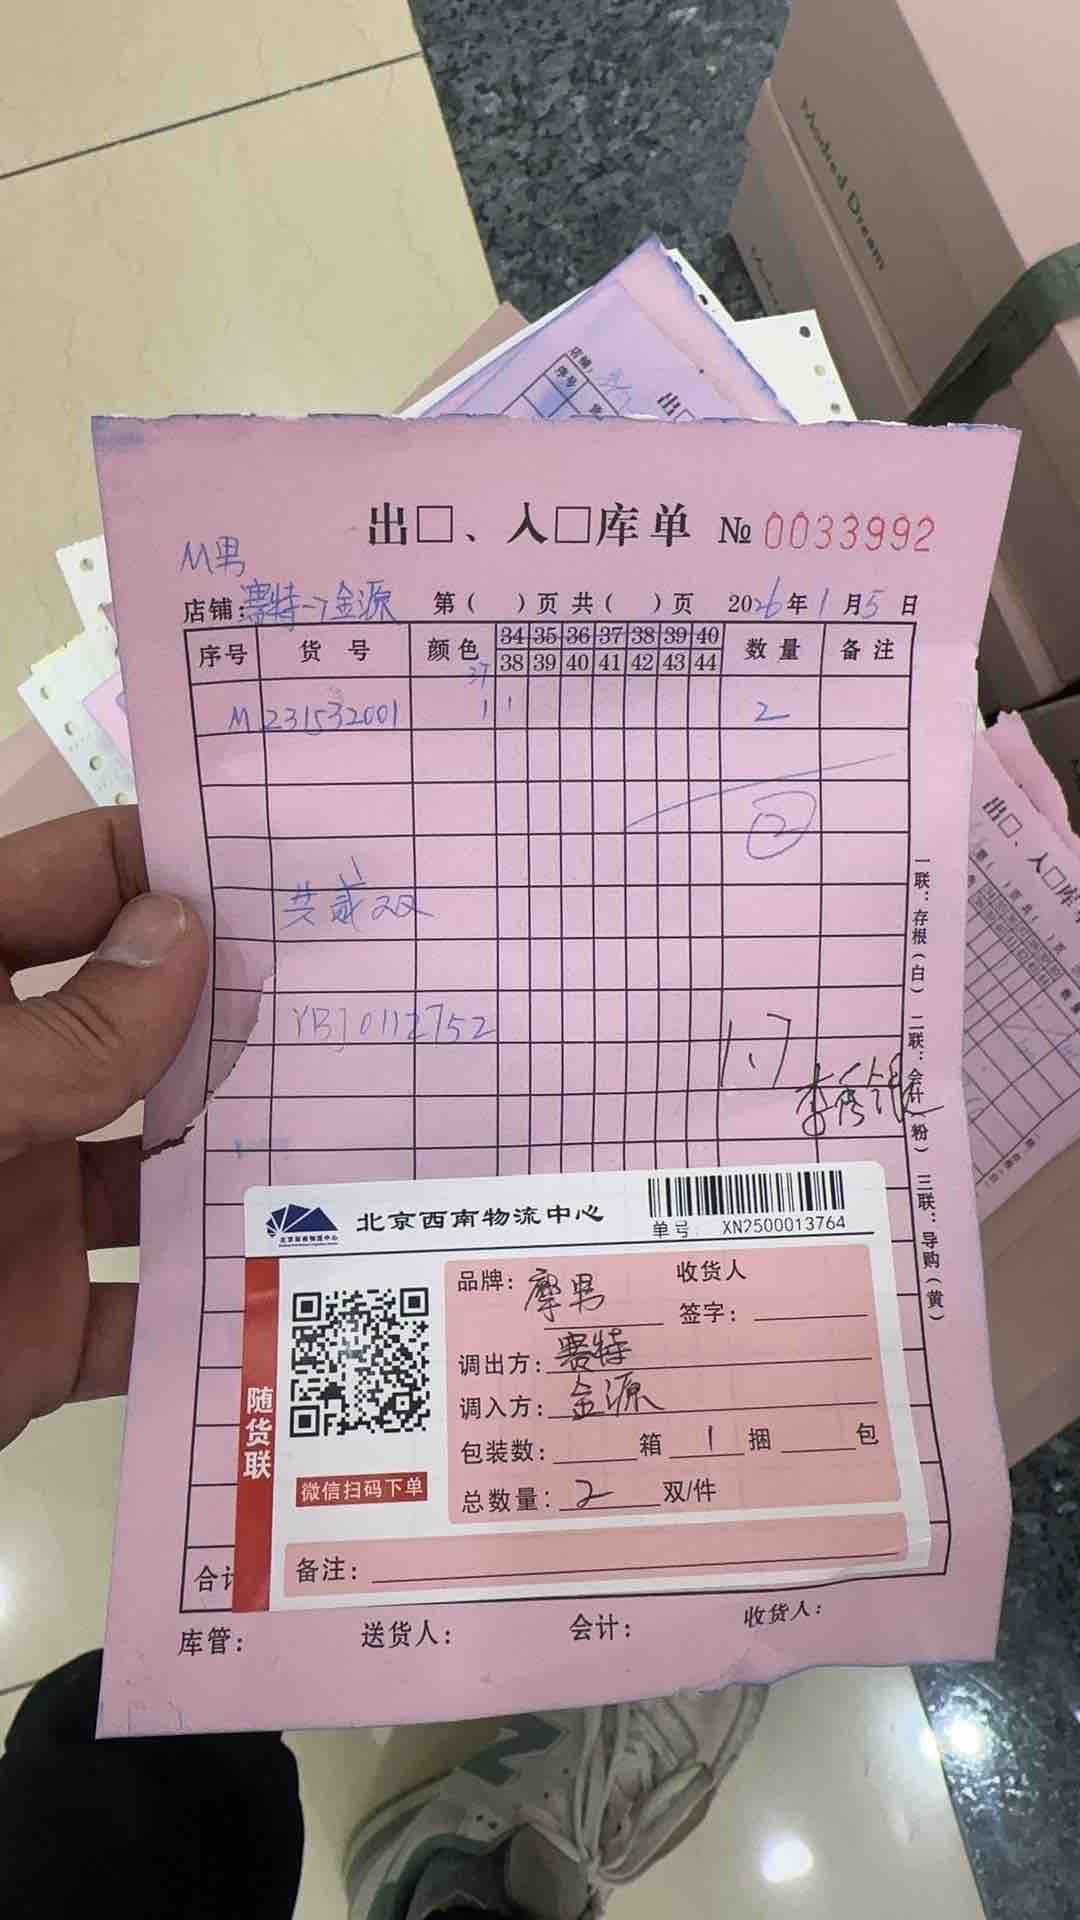 Modred Dream
店铺:
序号
出□
出□、入□库单 № 0033992
M男
店铺:赛特→金源 第( )页 共( )页 2026年1月5日
序号 货号 颜色 34 35 36 37 38 39 40 数量 备注
38 39 40 41 42 43 44
37
M 231532001 1 1 2
②
共贰双
YBJ0112752
1.7
李秀银
一联:存根(白) 二联:会计(粉) 三联:导购(黄)
北京西南物流中心
单号 XN2500013764
随货联
微信扫码下单
品牌:摩男 收货人
签字:
调出方:赛特
调入方:金源
包装数: 箱 1 捆 包
总数量:2 双/件
备注:
合计
库管: 送货人: 会计: 收货人:
出□、入□库